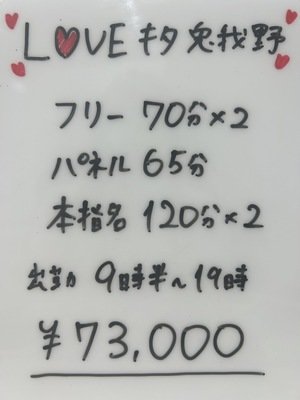 LOVE キタ 兎我野
フリー 70分×2
パネル 65分
本指名 120分×2
出勤 9時半〜19時
¥73,000